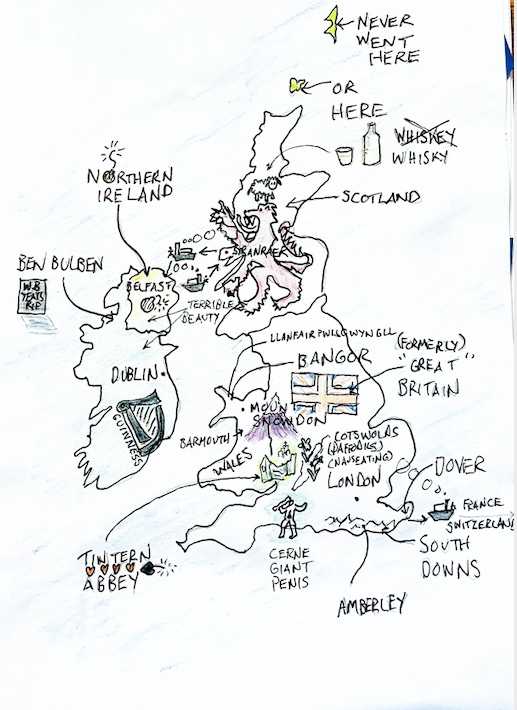 NEVER
WENT
HERE
OR
HERE
WHISKEY
WHISKY
NORTHERN
IRELAND
SCOTLAND
STRANRAER
BEN BULBEN
W.B
YEATS
RIP
BELFAST
TERRIBLE
BEAUTY
LLANFAIRPWLLGWYNGLL
(FORMERLY)
"GREAT"
BRITAIN
BANGOR
DUBLIN
GUINNESS
MOUNT
SNOWDON
BARMOUTH
WALES
COTSWOLDS
(DAFFODILS)
(NAUSEATING)
LONDON
DOVER
FRANCE
SWITZERLAND
SOUTH
DOWNS
TINTERN
ABBEY
CERNE
GIANT
PENIS
AMBERLEY